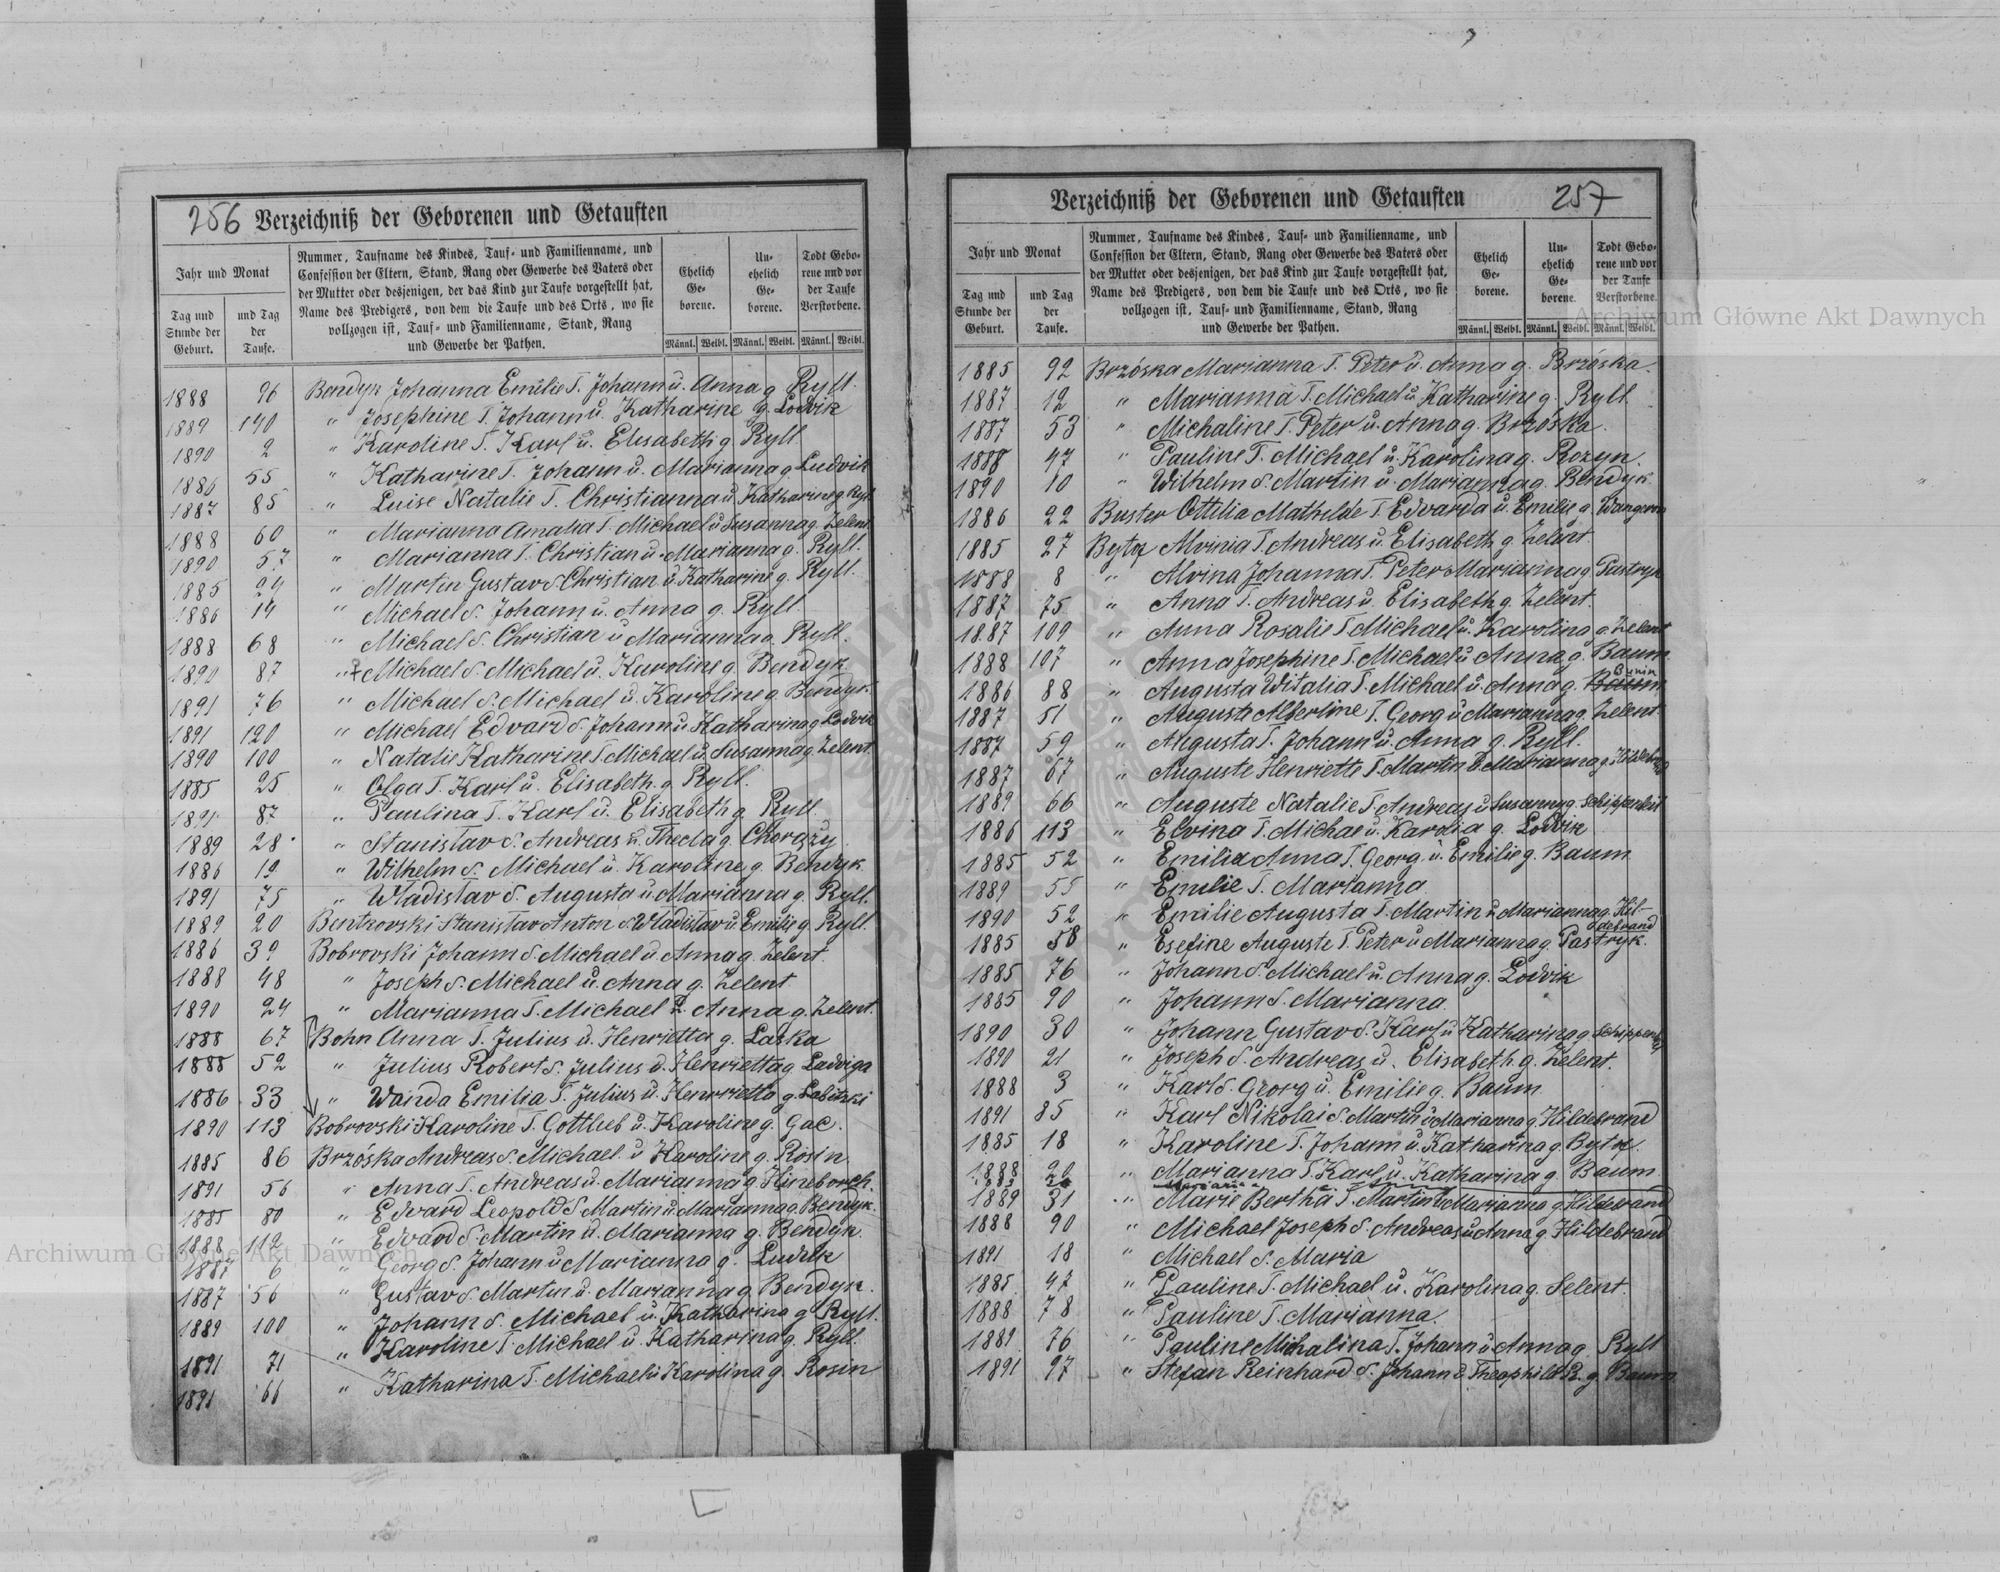 256 Verzeichniß der Geborenen und Getauften
Jahr und Monat
Tag und
Stunde der
Geburt.
und Tag
der
Taufe.
Nummer, Taufname des Kindes, Tauf- und Familienname, und
Confession der Eltern, Stand, Rang oder Gewerbe des Vaters oder
der Mutter oder desjenigen, der das Kind zur Taufe vorgestellt hat,
Name des Predigers, von dem die Taufe und des Orts, wo sie
vollzogen ist, Tauf- und Familienname, Stand, Rang
und Gewerbe der Pathen.
Ehelich
Ge-
borene.
Un-
ehelich
Ge-
borene.
Todt Gebo-
rene und vor
der Taufe
Verstorbene.
Männl. Weibl. Männl. Weibl. Männl. Weibl.
1888 96 Bendyk Johanna Emilie T. Johann u. Anna g. Ryll.
1889 140 " Josephine T. Johann u. Katharine g. Lodvik
1890 2 " Karoline T. Karl u. Elisabeth g. Ryll
1886 55 " Katharine T. Johann u. Marianna g. Ludvik
1887 85 " Luise Natalie T. Christianna u. Katharine g. Ryl
1888 60 " Marianna Amalia T. Michael u. Susanna g. Zelent
1890 57 " Marianna T. Christian u. Marianna g. Ryll.
1885 24 " Martin Gustav S. Christian u. Katharine g. Ryll.
1886 14 " Michael S. Johann u. Anna g. Ryll.
1888 68 " Michael S. Christian u. Marianna g. Ryll.
1890 87 " Michael S. Michael u. Karoline g. Bendyk
1891 76 " Michael S. Michael u. Karoline g. Bendyk
1891 120 " Michael Edvard S. Johann u. Katharina g. Lodvik
1890 100 " Natalie Katharine T. Michael u. Susanna g. Zelent
1885 25 " Olga T. Karl u. Elisabeth g. Ryll.
1891 87 " Paulina T. Karl u. Elisabeth g. Ryll.
1889 28 " Stanislav S. Andreas u. Thecla g. Chorąży
1886 19 " Wilhelm S. Michael u. Karoline g. Bendyk
1891 75 " Wladislav S. Augusta u. Marianna g. Ryll.
1889 20 Bentkovski Stanislav Anton S. Wladislav u. Emilie g. Ryll.
1886 39 Bobrovski Johann S. Michael u. Anna g. Zelent
1888 48 " Joseph S. Michael u. Anna g. Zelent
1890 24 " Marianna T. Michael u. Anna g. Zelent.
1888 67 Bohn Anna T. Julius u. Henrietta g. Laska
1888 52 " Julius Robert S. Julius u. Henrietta g. Ladviga
1886 33 " Wanda Emilia T. Julius u. Henrietta g. Labitzki
1890 113 Bobrovski Karoline T. Gottlieb u. Karoline g. Gac.
1885 86 Brzóska Andreas S. Michael u. Karoline g. Rosin
1891 56 " Anna T. Andreas u. Marianna g.
1885 80 " Edvard Leopold S. Martin u. Marianna g. Bendyk.
1888 112 " Edvard S. Martin u. Marianna g. Bendyk.
1887 6 " Georg S. Johann u. Marianna g. Ludvik
1887 56 " Gustav S. Martin u. Marianna g. Bendyk.
1889 100 " Johann S. Michael u. Katharina g. Ryll.
1891 71 " Karoline T. Michael u. Katharina g. Ryll.
1891 66 " Katharina T. Michael u. Karolina g. Rosin
Verzeichniß der Geborenen und Getauften 257
Jahr und Monat
Tag und
Stunde der
Geburt.
und Tag
der
Taufe.
Nummer, Taufname des Kindes, Tauf- und Familienname, und
Confession der Eltern, Stand, Rang oder Gewerbe des Vaters oder
der Mutter oder desjenigen, der das Kind zur Taufe vorgestellt hat,
Name des Predigers, von dem die Taufe und des Orts, wo sie
vollzogen ist, Tauf- und Familienname, Stand, Rang
und Gewerbe der Pathen.
Ehelich
Ge-
borene.
Un-
ehelich
Ge-
borene.
Todt Gebo-
rene und vor
der Taufe
Verstorbene.
Männl. Weibl. Männl. Weibl. Männl. Weibl.
1885 92 Brzóska Marianna T. Peter u. Anna g. Brzóska.
1887 12 " Marianna T. Michael u. Katharine g. Ryll
1887 53 " Michaline T. Peter u. Anna g. Brzóska.
1888 47 " Pauline T. Michael u. Karolina g. Rozyn.
1890 10 " Wilhelm S. Martin u. Marianna g. Bendyk
1886 22 Buster Ottilia Mathilde T. Edvarda u. Emilie g. Wangerin
1885 27 Bytyk Alvinia T. Andreas u. Elisabeth g. Zelent.
1888 8 " Alvina Johanna T. Peter Marianna g. Pastryk
1887 75 " Anna T. Andreas u. Elisabeth g. Zelent.
1887 109 " Anna Rosalie T. Michael u. Karolina g. Zelent
1888 107 " Anna Josephine T. Michael u. Anna g. Baum.
1886 88 " Augusta Witalia T. Michael u. Anna g. Baum
1887 51 " Augusta Albertine T. Georg u. Marianna g. Zelent.
1887 59 " Augusta T. Johann u. Anna g. Ryll.
1887 67 " Auguste Henriette T. Martin u. Marianna g. Hildebrand
1889 66 " Auguste Natalie T. Andreas u. Susanna g.
1886 113 " Elvina T. Michae u. Karolia g. Lodvik
1885 52 " Emilia Anna T. Georg u. Emilie g. Baum
1889 55 " Emilie T. Marianna
1890 52 " Emilie Augusta T. Martin u. Marianna g. Hil-
debrand
1885 58 " Esefine Auguste T. Peter u. Marianna g. Pastryk.
1885 76 " Johann S. Michael u. Anna g. Lodvik
1885 90 " Johann S. Marianna.
1890 30 " Johann Gustav S. Karl u. Katharina g.
1890 21 " Joseph S. Andreas u. Elisabeth g. Zelent.
1888 3 " Karl S. Georg u. Emilie g. Baum
1891 85 " Karl Nikolai S. Martin u. Marianna g. Hildebrand
1885 18 " Karoline T. Johann u. Katharina g. Bytyk.
1888 26 " Marianna T. Karl u. Katharina g. Baum
1889 31 " Marie Bertha T. Martin u. Marianna g. Hildebrand
1888 90 " Michael Joseph S. Andreas u. Anna g. Hildebrand
1891 18 " Michael S. Maria
1885 47 " Pauline T. Michael u. Karolina g. Selent.
1888 78 " Pauline T. Marianna.
1889 76 " Pauline Michalina T. Johann u. Anna g. Ryll
1891 97 " Stefan Reinhard S. Johann u. Theophile R. g. Baum
Archiwum Główne Akt Dawnych
Archiwum Główne Akt Dawnych